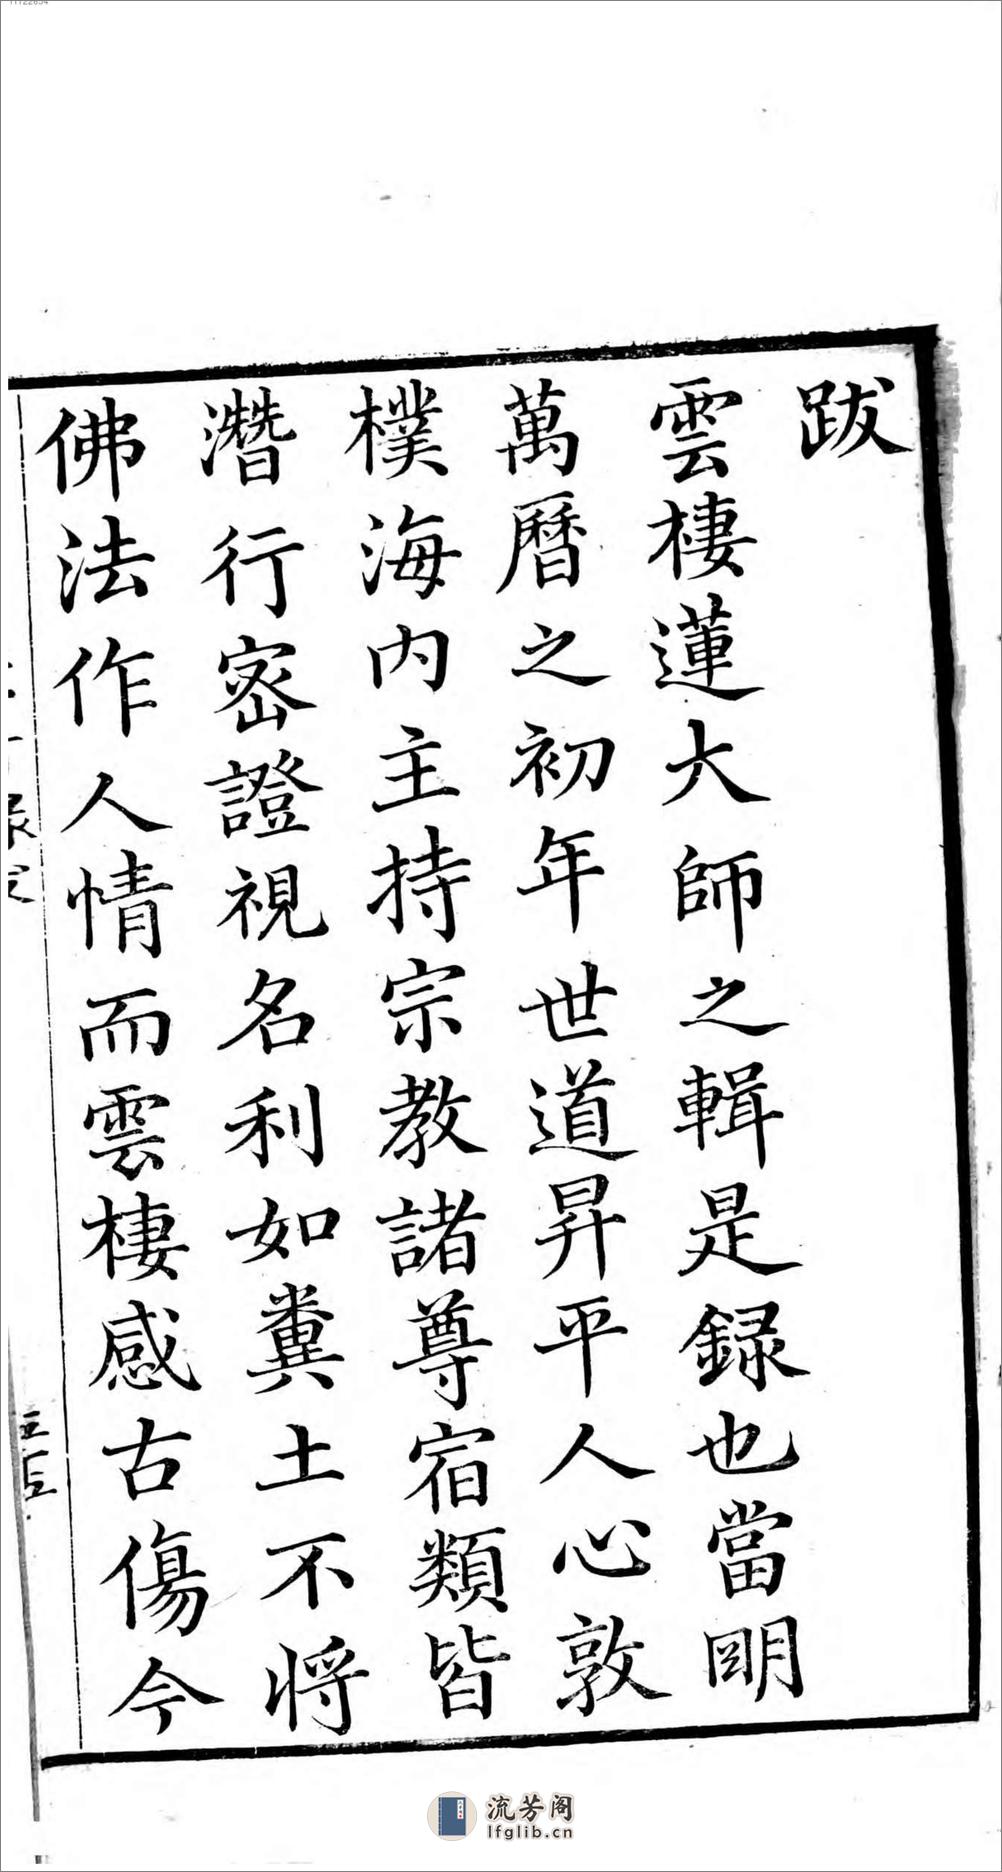 跋
雲棲蓮大師之輯是録也當明
萬曆之初年世道昇平人心敦
樸海内主持宗教諸尊宿類皆
潛行密證視名利如糞土不将
佛法作人情而雲棲感古傷今
流芳阁
lfglib.cn